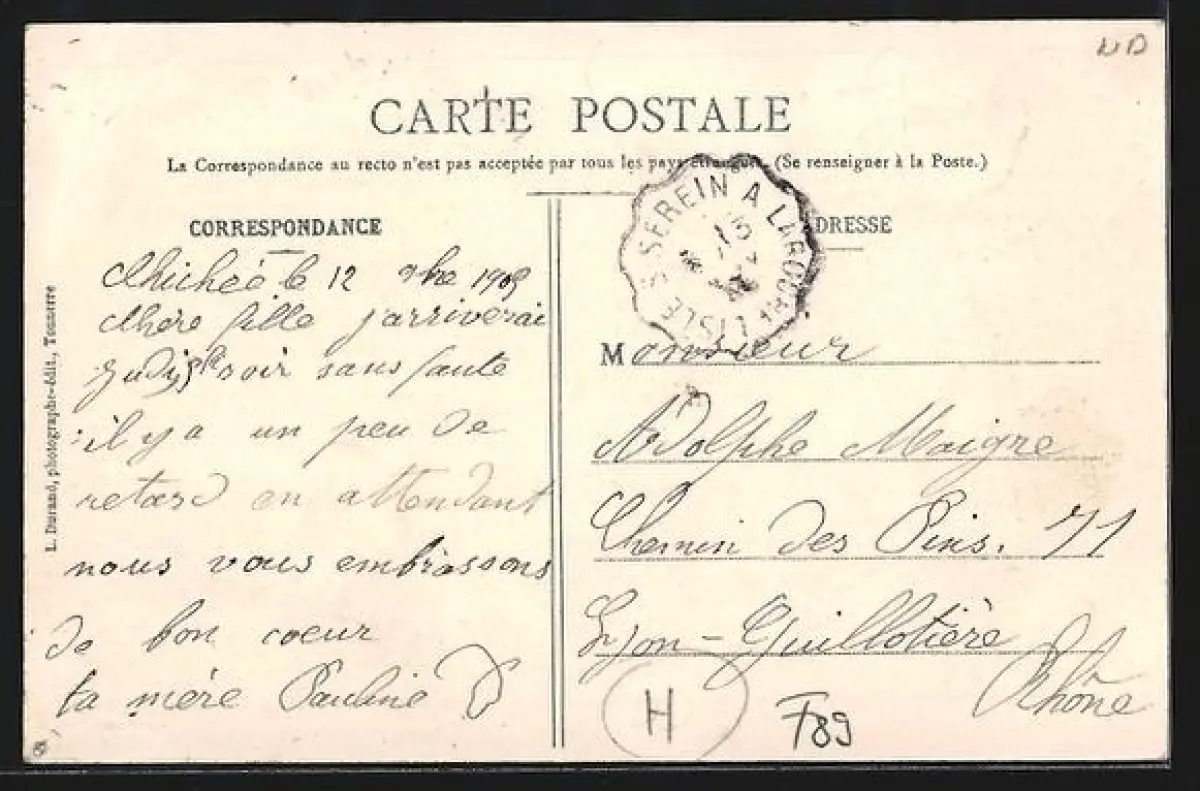 CARTE POSTALE
La Correspondance au recto n'est pas acceptée par tous les pays étrangers. (Se renseigner à la Poste.)
CORRESPONDANCE
le 12 9bre 1909
chère fille j'arriverai
soir sans faute
il y a un peu de
retard en attendant
nous vous embrassons
de bon coeur
ta mère Pauline
L. Durand, photographe-édit., Tonnerre
L'ISLE S SEREIN A LAROCHE
ADRESSE
Monsieur
Adolphe Maigre
Chemin des Pins. 71
Lyon-Guillotière
Rhône
H
F89